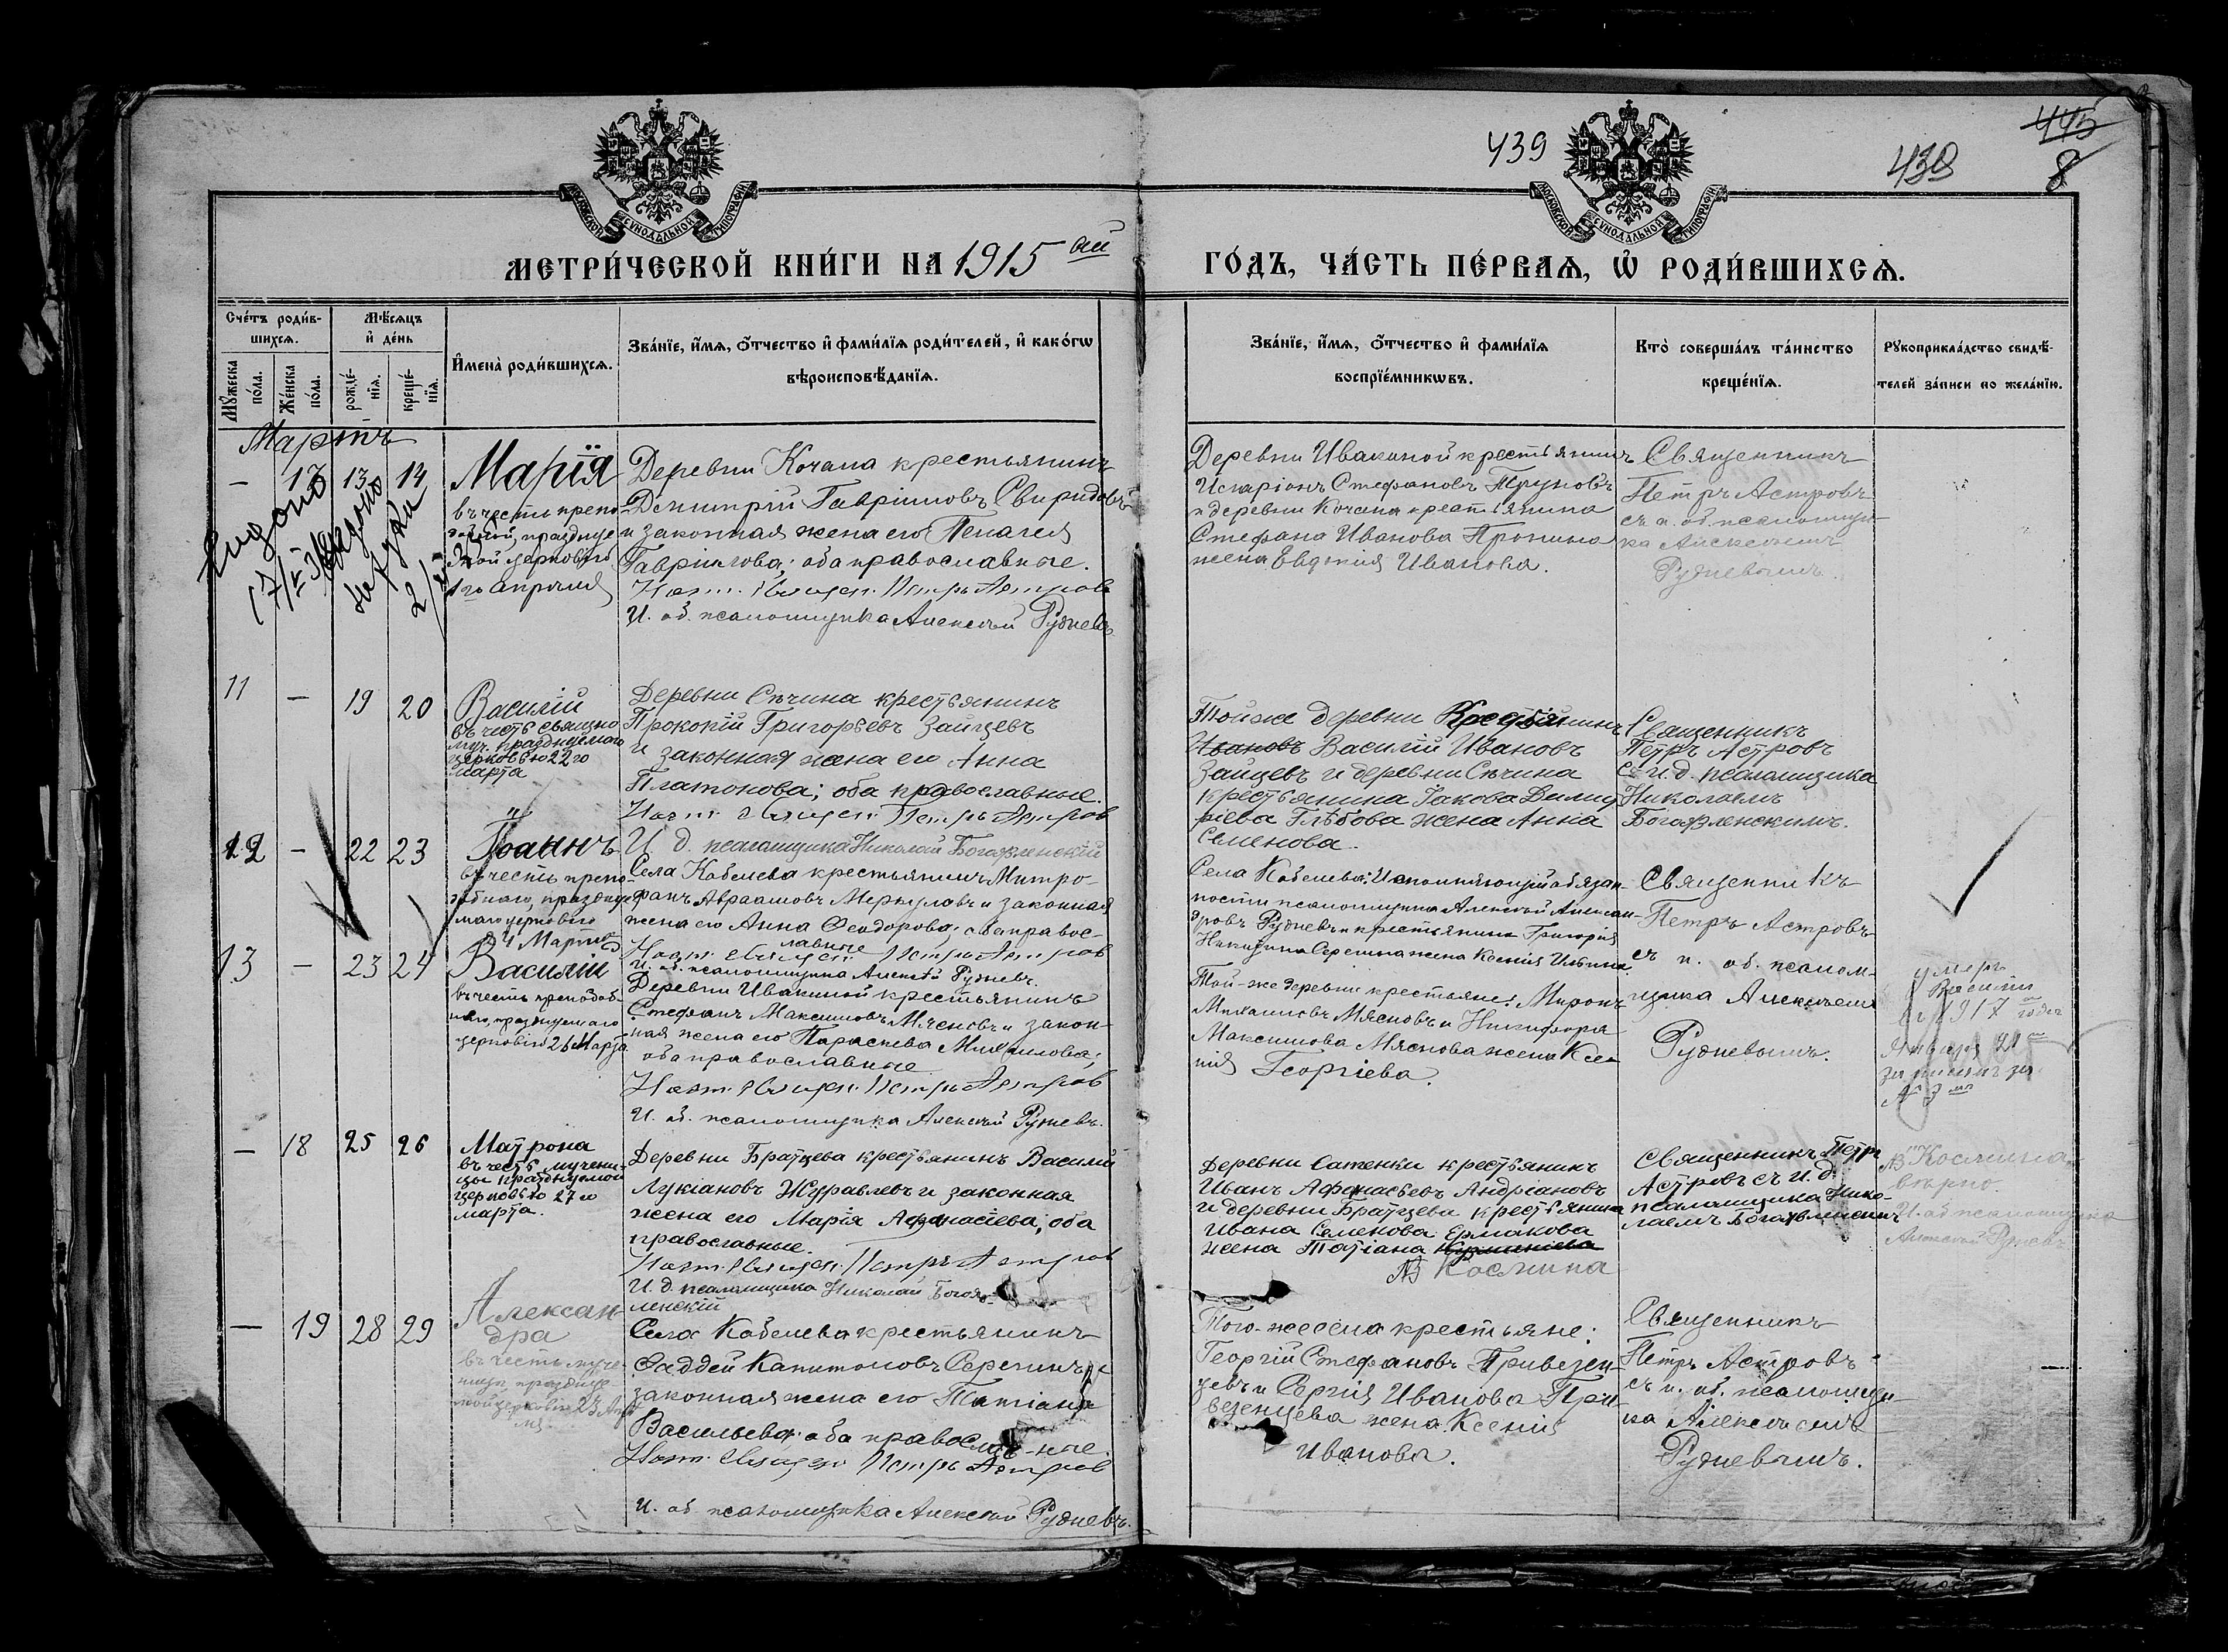 439
438
445
8
МОСКОВСКОЙ СѴНОДАЛЬНОЙ ТИПОГРАФІИ
МОСКОВСКОЙ СѴНОДАЛЬНОЙ ТИПОГРАФІИ
МЕТРИ́ЧЕСКОЙ КНИ́ГИ НА 1915 ый
ГО́ДЪ, ЧА́СТЬ ПЕ́РВАЯ, Ѡ РОДИ́ВШИХСЯ.
Сче́тъ роди́в-
шихся.
Мѣ́сяцъ
и҆ де́нь
Мꙋ́жеска по́ла.
Же́нска по́ла.
рожде́-
нїя.
креще́-
нїя.
И҆мена̀ роди́вшихся.
Зва́нїе, и҆́мя, о҆́тчество и҆ фами́лїя роди́телей, и҆ како́гѡ
вѣроисповѣ́данїя.
Зва́нїе, и҆́мя, о҆́тчество и҆ фами́лїя
воспрїе́мникѡвъ.
Кто̀ соверша́лъ та́инство
креще́нїя.
Рꙋкоприкла́дство свидѣ́-
телей за́писи по жела́нїю.
Мартъ
— 17 13 14
Марія
въ честь препо-
добной, празднуе
мой церковію
1го апрѣля
Деревни Кочана крестьянинъ
Димитрій Гавріиловъ Свиридовъ
и законная жена его Пелагея
Гавріилова; оба православные.
Священ. Петръ Астровъ
И. об. псаломщика Алексѣй Рудневъ
Деревни Ивакиной крестьянинъ
Иларіонъ Стефановъ Труновъ
и деревни Кочана крестьянина
Стефана Иванова Пронина
жена Евдокія Иванова.
Священникъ
Петръ Астровъ
съ и. об. псаломщи-
ка Алексѣемъ
Рудневымъ.
11 — 19 20
Василій
въ честь священно
муч. празднуемаго
церковью 22го
марта
Деревни Сѣчина крестьянинъ
Прокопій Григорьевъ Зайцевъ
и законная жена его Анна
Платонова; оба православные.
Священ. Петръ Астровъ
И. д. псаломщика Николай Богоявленскій
Тойже деревни Крестьянинъ
Ивановъ Василій Ивановъ
Зайцевъ и деревни Сѣчина
крестьянина Іакова Дими
ріева Глѣбова жена Анна
Семенова.
Священникъ
Петръ Астровъ
съ И. д. псаломщика
Николаемъ
Богоявленскимъ.
12 — 22 23
Іоаннъ
въ честь препо-
добнаго, празднуе
маго церковію
Марта
Села Кобелева крестьянинъ Митро-
фанъ Авраамовъ Меркуловъ и законная
жена его Анна Феодорова; оба правос-
лавные
Священ. Петръ Астровъ
И. об. псаломщика Алексѣй Рудневъ.
Села Кобелева: Исполняющій обязан-
ности псаломщика Алексѣй Алексан-
дровъ Рудневъ и крестьянина Григорія
жена Ксенія Ильина.
Священникъ
Петръ Астровъ
съ и. об. псалом-
щика Алексѣемъ
Рудневымъ.
13 — 23 24
Василій
въ честь преподоб-
наго, празднуемаго
церковію 26 Марта
Деревни Ивакиной крестьянинъ
Стефанъ Максимовъ Мясновъ и закон-
ная жена его Параскева Михаилова;
оба православные
Священ. Петръ Астровъ
И. об. псаломщика Алексѣй Рудневъ.
Той-же деревни крестьяне: Миронъ
Михаиловъ Мясновъ и Никифора
Максимова Мяснова жена Ксе-
нія Георгіева.
умеръ
Василій
1917 года
Января 21
запись за
№ 3
— 18 25 26
Матрона
въ честь мучени-
цы празднуемой
церковью 27го
марта.
Деревни Братцева крестьянинъ Василій
Лукіановъ Журавлевъ и законная
жена его Марія Афанасіева; оба
православные.
Священ. Петръ Астровъ
И. д. псаломщика Николай Богояв-
ленскій
Деревни Сатенки крестьянинъ
Иванъ Афанасьевъ Андріановъ
и деревни Братцева крестьянина
Ивана Семенова Ермакова
жена Татіана
Космина
Священникъ Петръ
Астровъ съ И. д.
псаломщика Нико-
лаемъ Богоявленскимъ
"Космина"
вѣрно.
И. об. псаломщика
Алексѣй Рудневъ
— 19 28 29
Алексан
дра
въ честь муче-
ницы, празднуе
мой церковію 23 Апрѣ
ля.
Села Кобелева крестьянинъ
Фаддей Капитоновъ Серегинъ и
законная жена его Татіана
Васильева; оба православ-ные.
Священ. Петръ Астровъ
И. об. псаломщика Алексѣй Рудневъ.
Того-же села крестьяне:
Георгій Стефановъ Привезен-
цевъ и Сергія Иванова При-
везенцева жена Ксенія
Иванова.
Священникъ
Петръ Астровъ
съ и. об. псаломщи-
ка Алексѣемъ
Рудневымъ.